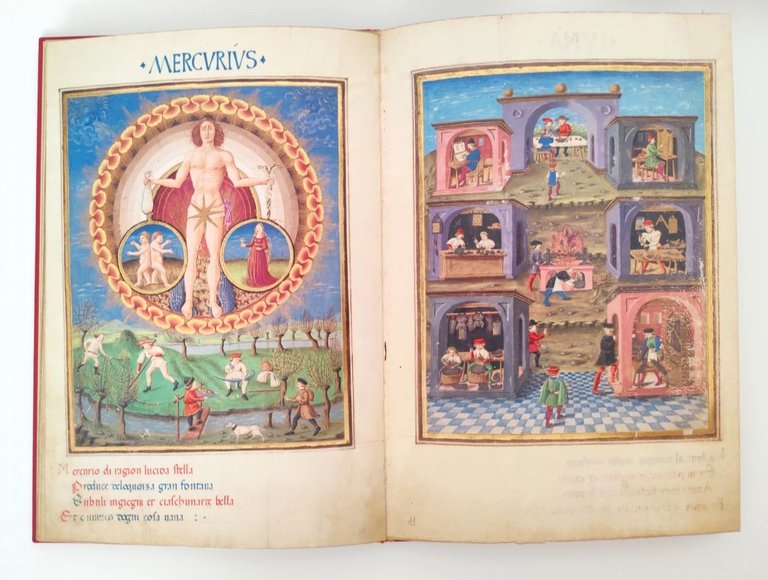 ·MERCVRIVS·
Mercurio di ragion lucida stella
Produce deloquenza gran fontana
Subtili ingiegni et ciaschunarte bella
Et e inimico dogni cosa vana :·